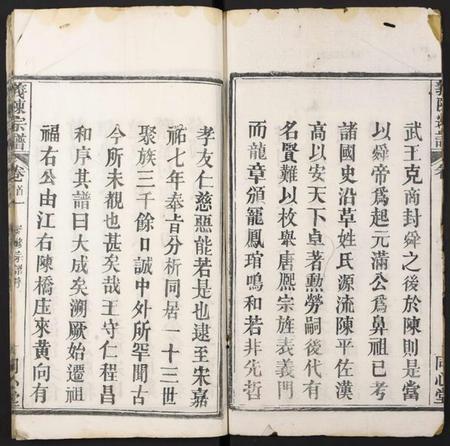 武王克商封舜之後於陳則是當
以舜帝為起元滿公為鼻祖已考
諸國史沿草姓氏源流陳平佐漢
高以安天下卓著勲勞嗣後代有
名賢難以枚舉唐熙宗旌表義門
而龍章頒寵鳳琯鳴和若非先哲
義陳宗譜
同心堂
孝友仁慈惡能若是也逮至宋嘉
祐七年奉旨分析同居一十三世
聚族三千餘口誠中外所罕聞古
今所未觀也甚矣哉王守仁程昌
和序其譜曰大成矣溯厥始遷祖
福右公由江右陳橋庄來黄向有
義陳宗譜
卷首一
同心堂